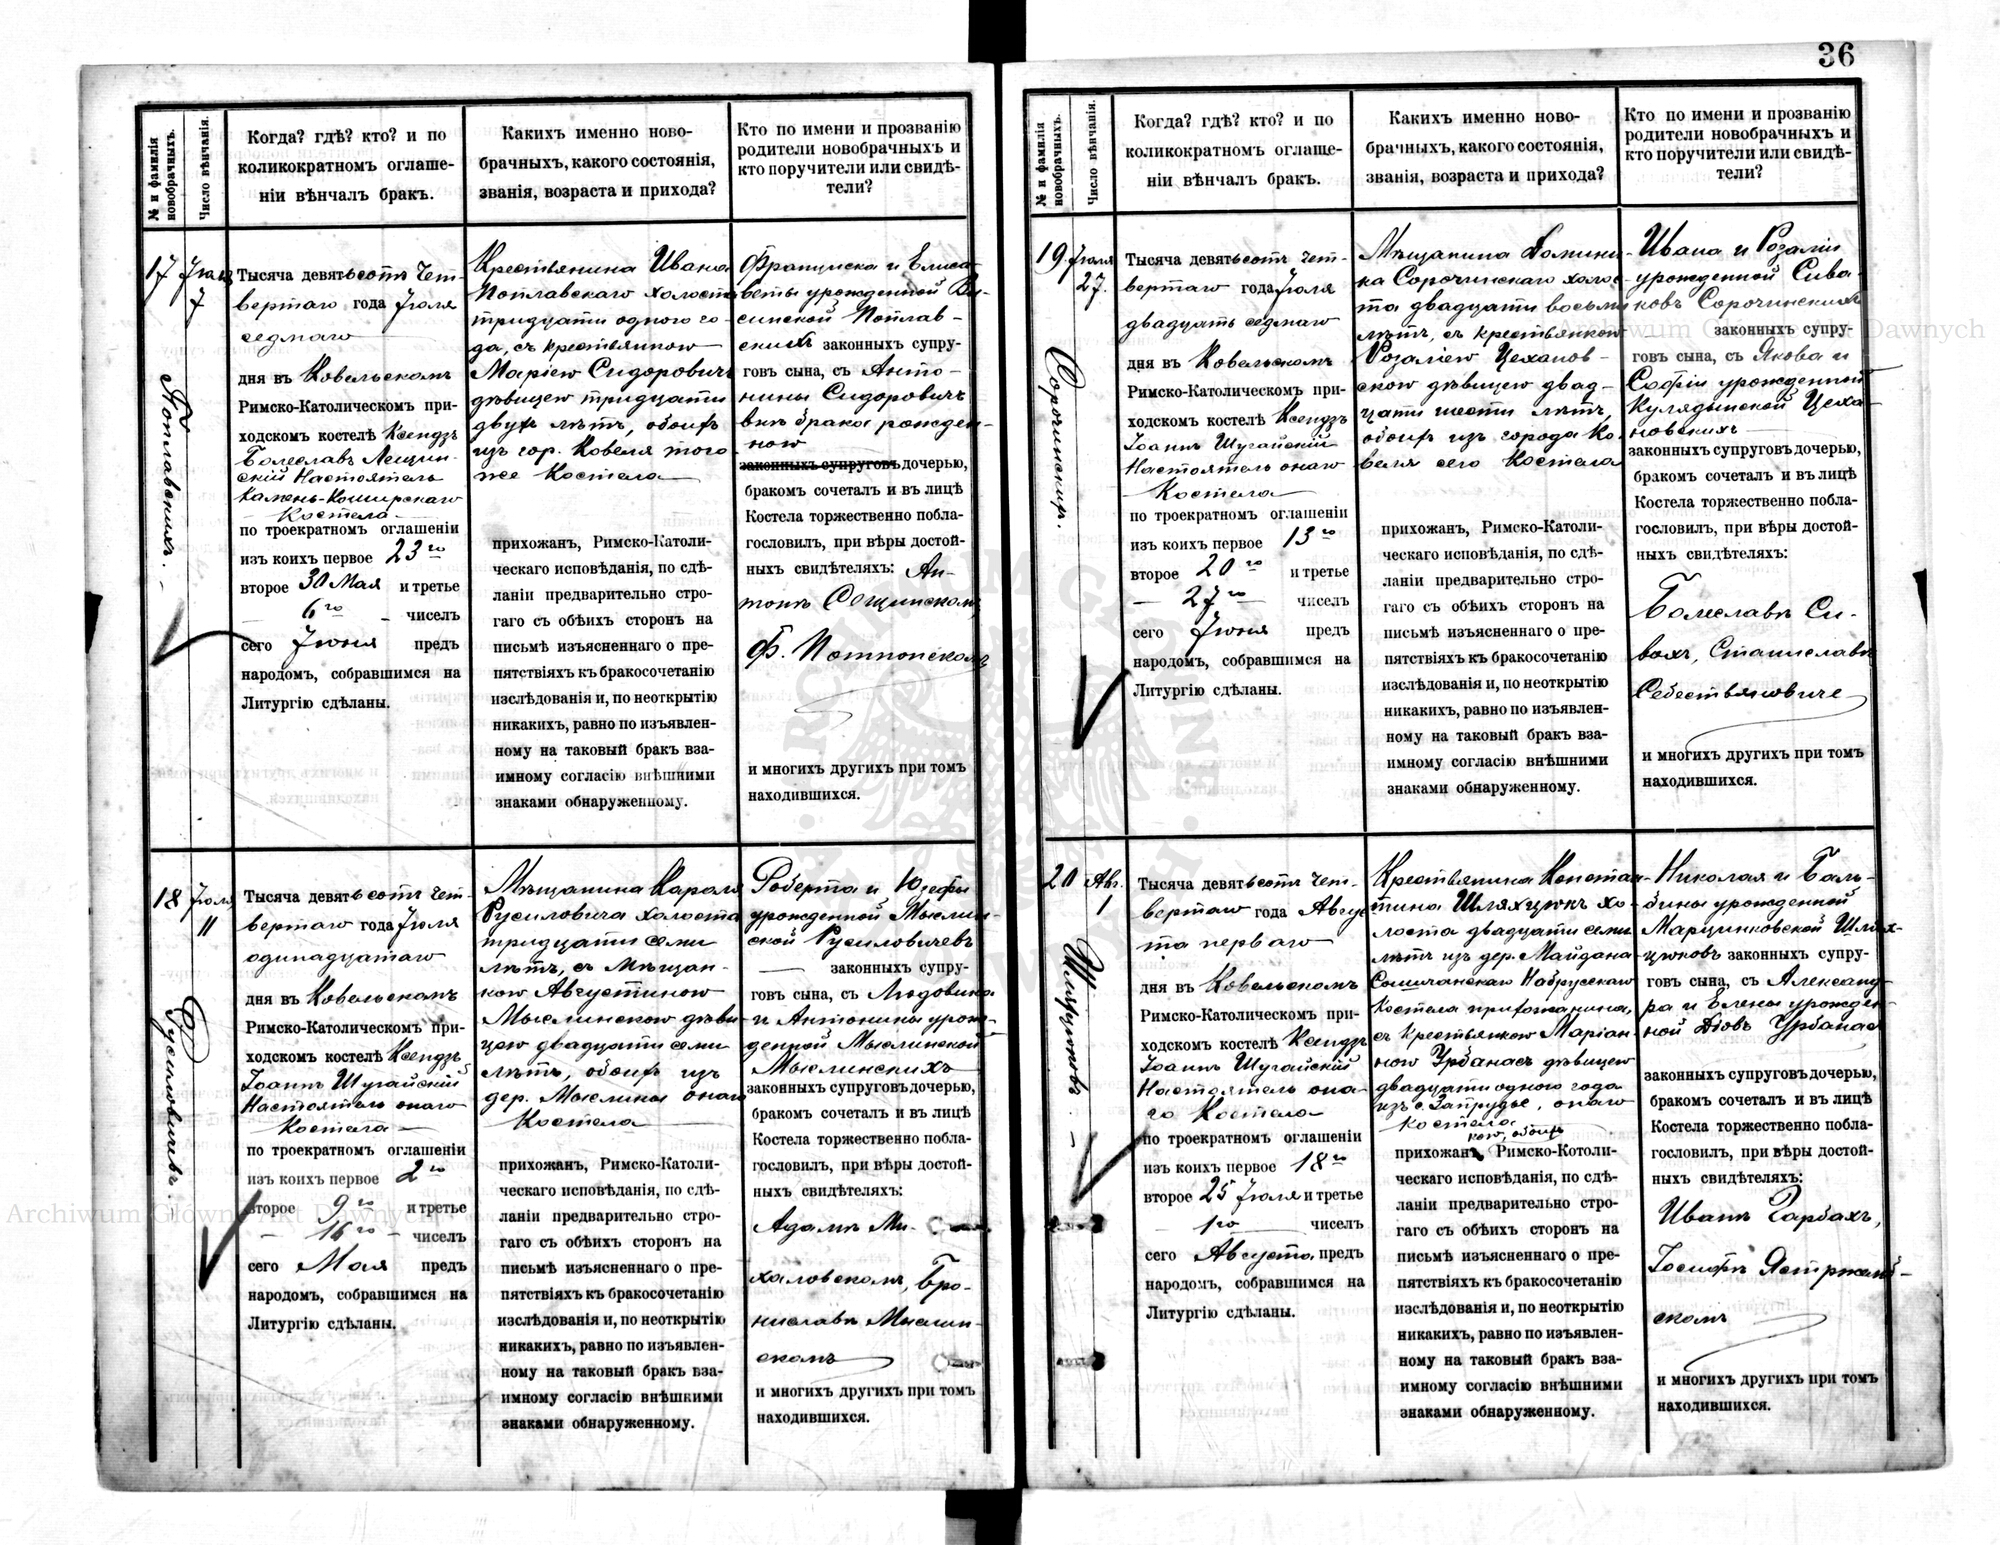 36
№ и фамилія новобрачныхъ.
Число вѣнчанія.
Когда? гдѣ? кто? и по
коликократномъ оглаше-
ніи вѣнчалъ бракъ.
Какихъ именно ново-
брачныхъ, какого состоянія,
званія, возраста и прихода?
Кто по имени и прозванію
родители новобрачныхъ и
кто поручители или свидѣ-
тели?
17
Іюля
7
Поплавскихъ.
Тысяча девятьсотъ чет-
вертаго года Іюля
седмаго
дня въ Ковельскомъ
Римско-Католическомъ при-
ходскомъ костелѣ Ксендзъ
Болеславъ Лещин-
скій Настоятель
Камень-Коширскаго
Костела
по троекратномъ оглашеніи
изъ коихъ первое 23го
второе 30 Мая и третье
6го чиселъ
сего Іюня предъ
народомъ, собравшимся на
Литургію сдѣланы.
Крестьянина Ивана
Поплавскаго холоста
тридцати одного го-
да, съ крестьянкою
Маріею Сидоровичъ
дѣвицею тридцати
двухъ лѣтъ, обоихъ
изъ гор. Ковеля того
же Костела
прихожанъ, Римско-Католи-
ческаго исповѣданія, по сдѣ-
ланіи предварительно стро-
гаго съ обѣихъ сторонъ на
письмѣ изъясненнаго о пре-
пятствіяхъ къ бракосочетанію
изслѣдованія и, по неоткрытію
никакихъ, равно по изъявлен-
ному на таковый бракъ вза-
имному согласію внѣшними
знаками обнаруженному.
Франциска и Елиса-
веты урожденной Ви-
синской Поплав-
скихъ законныхъ супру-
говъ сына, съ Анто-
нины Сидоровичъ
внѣ брака рожден-
ною
законныхъ супруговъ дочерью,
бракомъ сочеталъ и въ лицѣ
Костела торжественно побла-
гословилъ, при вѣры достой-
ныхъ свидѣтеляхъ: Ан-
тонѣ
Ф.
и многихъ другихъ при томъ
находившихся.
18
Іюля
11
Русиловичъ.
Тысяча девятьсотъ чет-
вертаго года Іюля
одинадцатаго
дня въ Ковельскомъ
Римско-Католическомъ при-
ходскомъ костелѣ Ксендзъ
Іоаннъ Шугайскій
Настоятель онаго
Костела
по троекратномъ оглашеніи
изъ коихъ первое 2го
второе 9го и третье
16го чиселъ
сего Мая предъ
народомъ, собравшимся на
Литургію сдѣланы.
Мѣщанина Кароля
Русиловича холоста
тридцати семи
лѣтъ, съ Мѣщан-
кою Августиною
Мыслинскою дѣви-
цею двадцати семи
лѣтъ, обоихъ изъ
дер. Мыслины онаго
Костела
прихожанъ, Римско-Католи-
ческаго исповѣданія, по сдѣ-
ланіи предварительно стро-
гаго съ обѣихъ сторонъ на
письмѣ изъясненнаго о пре-
пятствіяхъ къ бракосочетанію
изслѣдованія и, по неоткрытію
никакихъ, равно по изъявлен-
ному на таковый бракъ вза-
имному согласію внѣшними
знаками обнаруженному.
Роберта и Юзефы
урожденной Мыслин-
ской Русиловичевъ
законныхъ супру-
говъ сына, съ Людовика
и Антонины урож-
денной Мыслинской
Мыслинскихъ
законныхъ супруговъ дочерью,
бракомъ сочеталъ и въ лицѣ
Костела торжественно побла-
гословилъ, при вѣры достой-
ныхъ свидѣтеляхъ:
Адамѣ Ми-
халовскомъ, Бро-
ниславѣ Мыслин-
скомъ
и многихъ другихъ при томъ
находившихся.
№ и фамилія новобрачныхъ.
Число вѣнчанія.
Когда? гдѣ? кто? и по
коликократномъ оглаше-
ніи вѣнчалъ бракъ.
Какихъ именно ново-
брачныхъ, какого состоянія,
званія, возраста и прихода?
Кто по имени и прозванію
родители новобрачныхъ и
кто поручители или свидѣ-
тели?
19
Іюля
27.
Сорочинскихъ.
Тысяча девятьсотъ чет-
вертаго года Іюля
двадцать седмаго
дня въ Ковельскомъ
Римско-Католическомъ при-
ходскомъ костелѣ Ксендзъ
Іоаннъ Шугайскій
Настоятель онаго
Костела
по троекратномъ оглашеніи
изъ коихъ первое 13го
второе 20го и третье
27го чиселъ
сего Іюня предъ
народомъ, собравшимся на
Литургію сдѣланы.
Мѣщанина Домини-
ка Сорочинскаго холос-
та двадцати восьми
лѣтъ, съ крестьянкою
Розаліею Цеханов-
скою дѣвицею двад-
цати шести лѣтъ,
обоихъ изъ города Ко-
веля сего Костела
прихожанъ, Римско-Католи-
ческаго исповѣданія, по сдѣ-
ланіи предварительно стро-
гаго съ обѣихъ сторонъ на
письмѣ изъясненнаго о пре-
пятствіяхъ къ бракосочетанію
изслѣдованія и, по неоткрытію
никакихъ, равно по изъявлен-
ному на таковый бракъ вза-
имному согласію внѣшними
знаками обнаруженному.
Ивана и Розаліи
урожденной Сива-
ковъ Сорочинскихъ
законныхъ супру-
говъ сына, съ Якова и
Софіи урожденной
Кулядынской Цеха-
новскихъ
законныхъ супруговъ дочерью,
бракомъ сочеталъ и въ лицѣ
Костела торжественно побла-
гословилъ, при вѣры достой-
ныхъ свидѣтеляхъ:
Болеславѣ Си-
вахъ, Станиславѣ
Себестьяновиче
и многихъ другихъ при томъ
находившихся.
20
Авг.
1
Шляхцюковъ
Тысяча девятьсотъ чет-
вертаго года Авгус-
та перваго
дня въ Ковельскомъ
Римско-Католическомъ при-
ходскомъ костелѣ Ксендзъ
Іоаннъ Шугайскій
Настоятель она-
го Костела
по троекратномъ оглашеніи
изъ коихъ первое 18го
второе 25 Іюля и третье
1го чиселъ
сего Августа предъ
народомъ, собравшимся на
Литургію сдѣланы.
Крестьянина Констан-
тина Шляхцюкъ хо-
лоста двадцати семи
лѣтъ изъ дер. Майдана
Набрусскаго
Костела прихожанина,
съ Крестьянкою Маріан-
ною Урбанасъ дѣвицею
двадцати одного года
изъ с. Запрудье, онаго
Костела
кою, обоихъ
прихожанъ, Римско-Котоли-
ческаго исповѣданія, по сдѣ-
ланіи предварительно стро-
гаго съ обѣихъ сторонъ на
письмѣ изъясненнаго о пре-
пятствіяхъ къ бракосочетанію
изслѣдованія и, по неоткрытію
никакихъ, равно по изъявлен-
ному на таковый бракъ вза-
имному согласію внѣшними
знаками обнаруженному.
Николая и Баль-
бины урожденной
Марцинковской Шлях-
цюковъ законныхъ супру-
говъ сына, съ Александ-
ра и Елены урожден-
ной Урбанасъ
законныхъ супруговъ дочерью,
бракомъ сочеталъ и въ лицѣ
Костела торжественно побла-
гословилъ, при вѣры достой-
ныхъ свидѣтеляхъ:
Иванѣ Гарбахъ,
Іосифѣ Ястржемб-
скомъ
и многихъ другихъ при томъ
находившихся.
Archiwum Główne Akt Dawnych
Archiwum Główne Akt Dawnych
ARCHIWUM GŁÓWNE